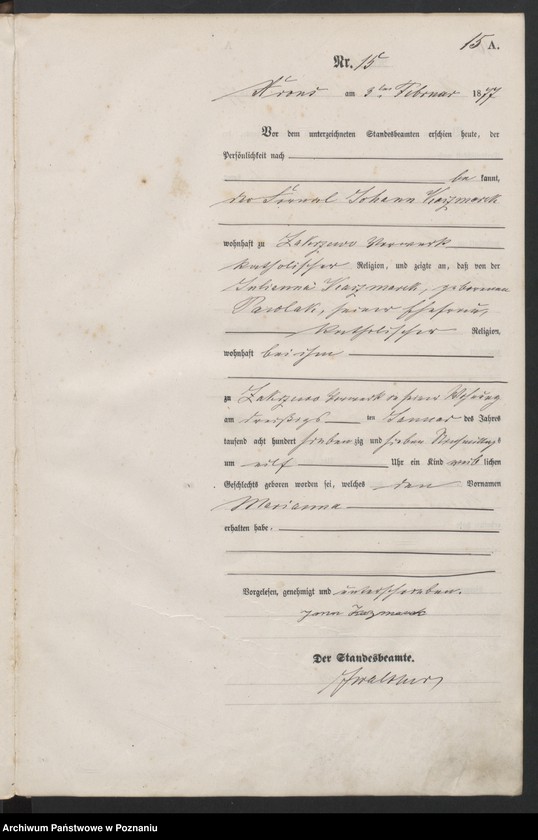 15 A.
Nr. 15
am 3ten Februar 1877
Vor dem unterzeichneten Standesbeamten erschien heute, der
Persönlichkeit nach
be kannt,
der Fornal Johann Kaczmarek
wohnhaft zu Zakrzewo Vorwerk
katholischer Religion, und zeigte an, daß von der
Julianna Kaczmarek, geborenen
Pawlak, seiner Ehefrau,
katholischer Religion,
wohnhaft bei ihm
zu Zakrzewo Vorwerk in seiner Wohnung
am dreißigs ten Januar des Jahres
tausend acht hundert sieben zig und sieben Nachmittags
um eilf Uhr ein Kind weib lichen
Geschlechts geboren worden sei, welches den Vornamen
Marianna
erhalten habe.
Vorgelesen, genehmigt und unterschrieben.
Kaczmarek
Der Standesbeamte.
Archiwum Państwowe w Poznaniu